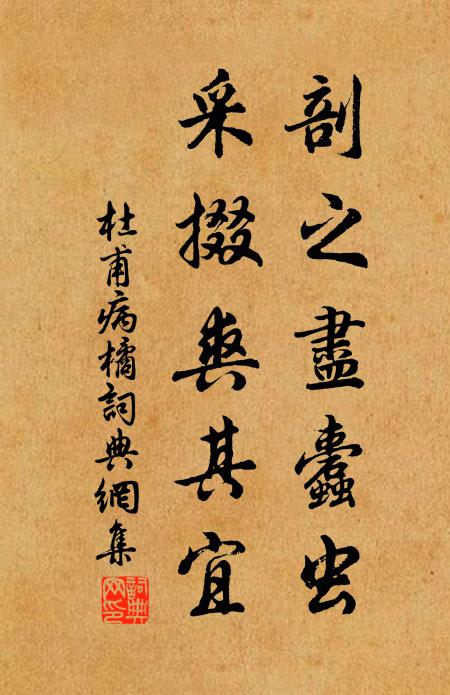 剖之盡蠹虫
采掇爽其宜
杜甫病橘詞典網集
詞典网印